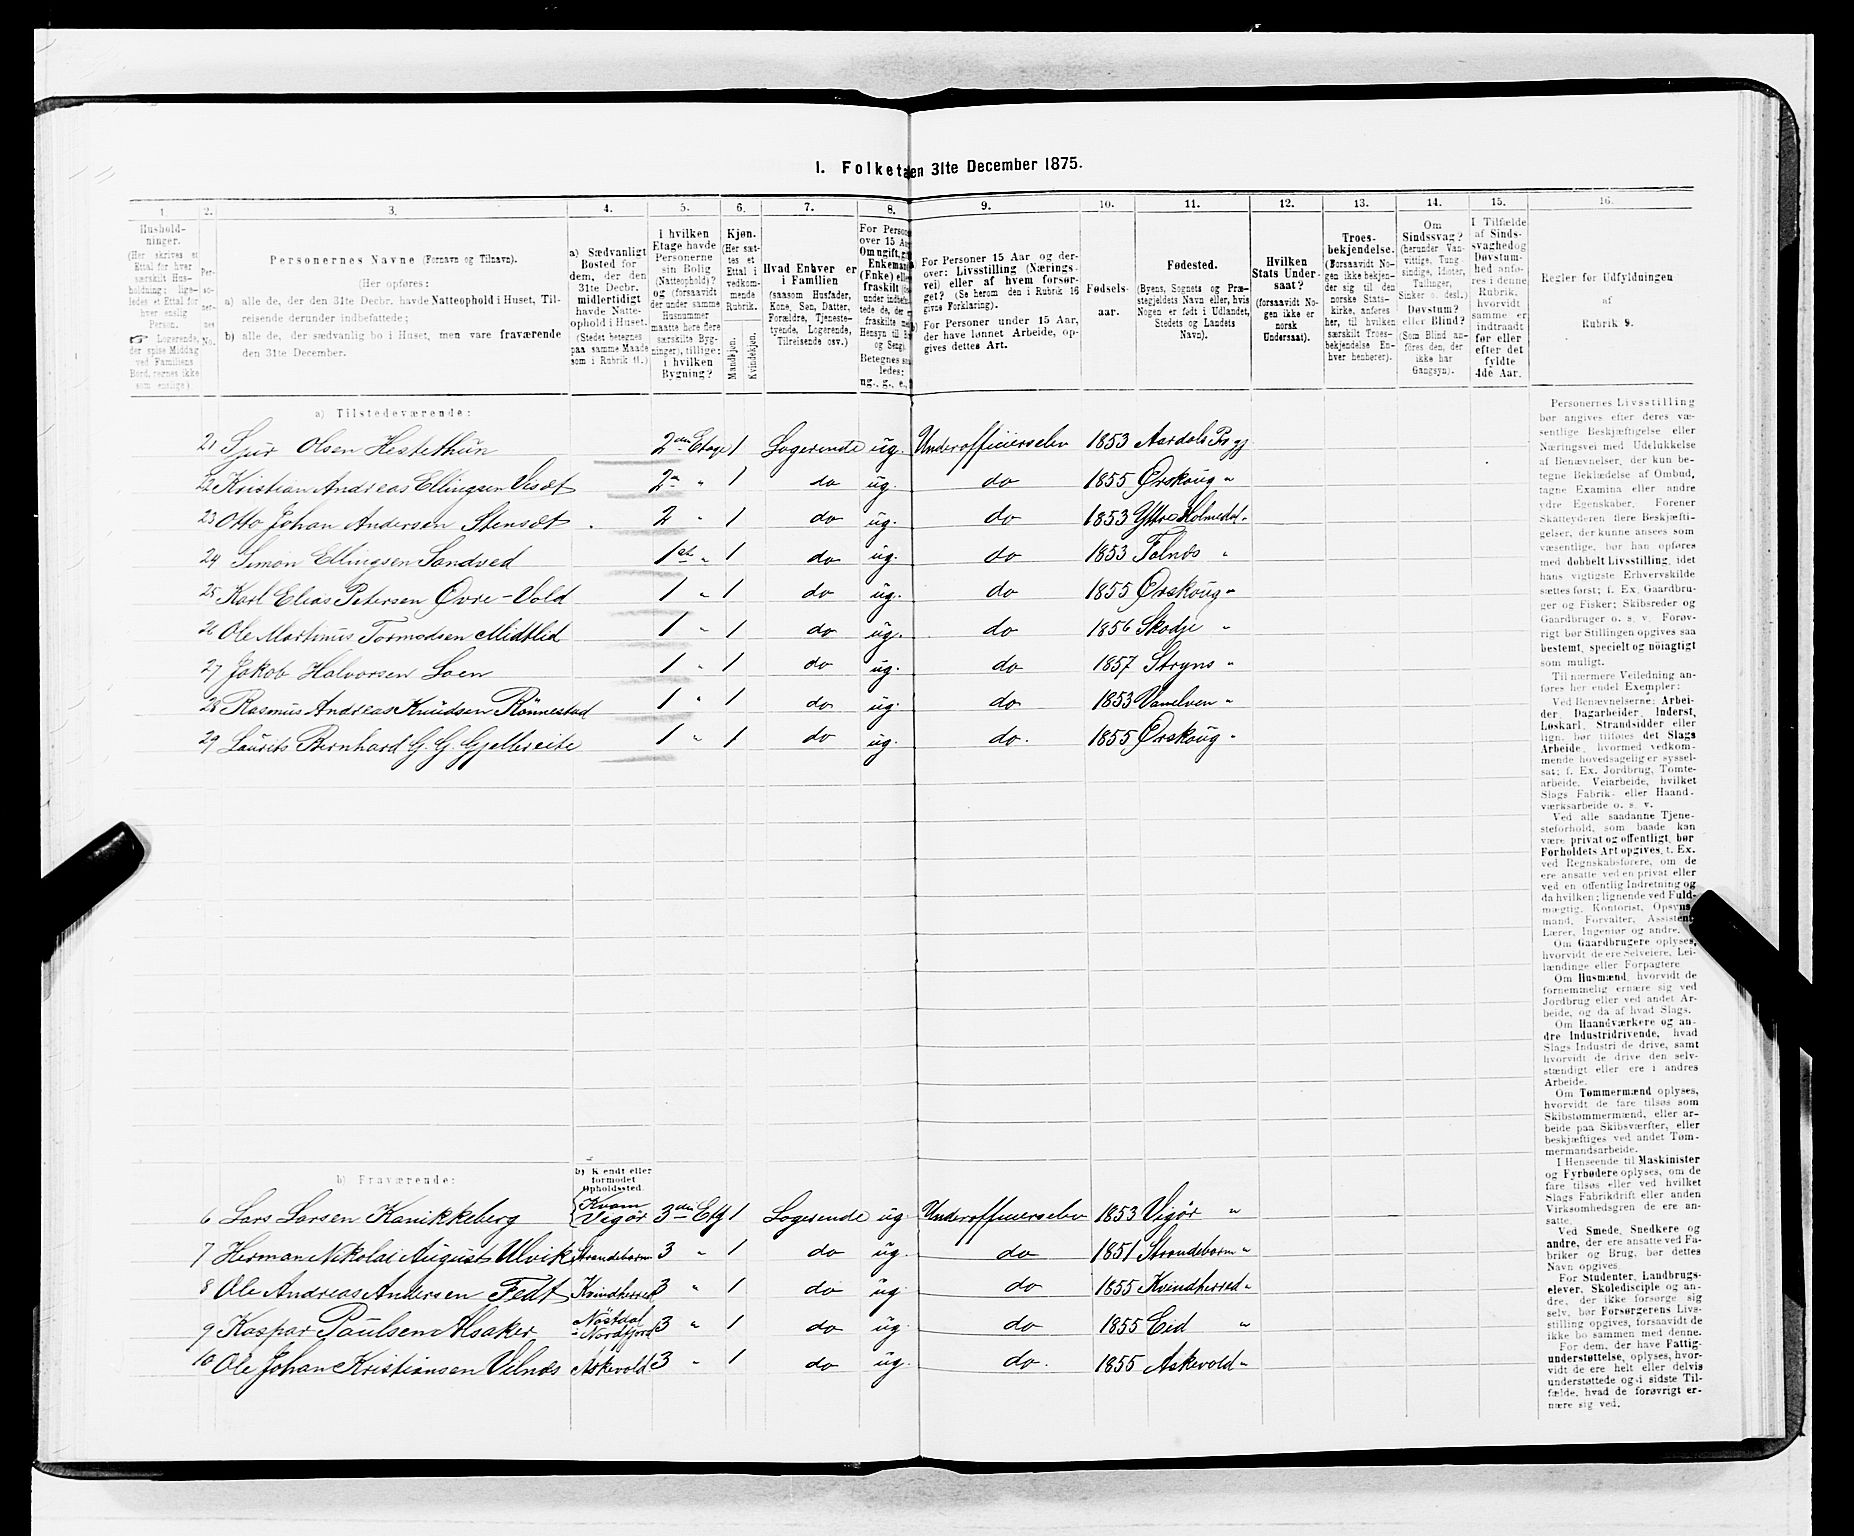 1. Folketæ en 31te December 1875.
1. 2. 3. 4. 5. 6. 7. 8. 9. 10. 11. 12. 13. 14. 15. 16.
Hushold-
ninger.
(Her skrives et
Ettal for hver
særskilt Hus-
holdning: lige-
ledes et Ettal for
hver enslig
Person.
☞ Logerende,
der spise Middag
ved Familiens
Bord, regnes ikke
som enslige).
Per-
so-
ner-
nes
No.
Personernes Navne (Fornavn og Tilnavn).
(Her opføres:
a) alle de, der den 31te Decbr. havde Natteophold i Huset, Til-
reisende derunder indbefattede;
b) alle de, der sædvanlig bo i Huset, men vare fraværende
den 31te December.
a) Sædvanligt
Bosted for
dem, der den
31te Decbr.
midlertidigt
havde Natte-
ophold i Huset.
(Stedet betegnes
paa samme Maade
som i Rubrik 11.)
I hvilken
Etage havde
Personerne
sin Bolig
(Natteophold)?
og (forsaavidt
der under samme
Husnummer
maatte høre flere
særskilte Byg-
ninger), tillige:
i hvilken
Bygning?
Kjøn.
(Her sæt-
tes et
Ettal i
vedkom-
mende
Rubrik.
Mandkjøn.
Kvindekjøn.
Hvad Enhver er
i Familien
(saasom Husfader,
Kone, Søn, Datter,
Forældre, Tjeneste-
tyende, Logerende,
Tilreisende osv.)
For Person
over 15 Aa
Om ugift, g
Enkeman
(Enke) elle
fraskilt (
under indbef
tede de, der e
fraskilte me
Hensyn til B
og Seng).
Betegnes sa
ledes:
ug., g., e.,
For Personer 15 Aar og der-
over: Livsstilling (Nærings-
vei) eller af hvem forsør-
get? (Se herom den i Rubrik 16
givne Forklaring).
For Personer under 15 Aar,
der have lønnet Arbeide, op-
gives dettes Art.
Fødsels-
aar.
Fødested.
(Byens, Sognets og Præ-
stegjeldets Navn eller, hvis
Nogen er født i Udlandet,
Stedets og Landets
Navn).
Hvilken
Stats Under-
saat?
(forsaavidt No-
gen ikke er
norsk
Undersaat).
Troes-
bekjendelse.
(Forsaavidt No-
gen ikke bekjen-
der sig til den
norske Stats-
kirke, anføres
her, til hvilken
særskilt Troes-
bekjendelse En-
hver henhører).
Om
Sindssvag?
(herunder Van-
vittige, Tung-
sindige, Idioter,
Tullinger,
Sinker o. desl.)
Døvstum?
eller Blind?
(Som Blind an-
føres den, der
ikke har
Gangsyn).
I Tilfælde
af Sinds-
svaghed og
Døvstum-
hed anfø-
res i denne
Rubrik,
hvorvidt
samme er
indtraadt
før eller
efter det
fyldte
4de Aar.
Regler for Udfyldningen
af
Rubrik 9.
a) Tilstedeværende:
21 Sjur Olsen Hestethun 2den Etage 1 Logerende ug. Underofficierselev 1853 Aardals Psgj
22 Kristian Andreas Ellingsen Viset 2den " 1 do ug. do 1855 Ørskoug "
23 Otto Johan Andersen Stenset 2 " 1 do ug. do 1853 Yttre Holmedal "
24 Simon Ellingsen Sandved 1ste " 1 do ug. do 1853 Folnes "
25 Karl Elias Petersen Øvre-Vold 1 " 1 do ug. do 1855 Ørskoug "
26 Ole Martinus Tormodsen Midtlid 1 " 1 do ug. do 1856 Skodje "
27 Jakob Halvorsen Loen 1 " 1 do ug. do 1857 Stryns "
28 Rasmus Andreas Knudsen Rönnestad 1 " 1 do ug. do 1853 Vanelven "
29 Laurits Bernhard G. G. Gjellereite 1 " 1 do ug. do. 1855 Ørskoug "
b) Fraværende:
b) Kjendt eller
formodet
Opholdssted.
6 Lars Larsen Kanikkeberg Kvam Vigör 3die Etg 1 Logerende ug. Underofficierselev 1853 Vigör "
7 Herman Nikolai August Ulvik Strandebarm 3 " 1 do ug. do 1851 Strandebarm "
8 Ole Andreas Andersen Fedt Kvindherred 3 " 1 do ug. do 1855 Kvindherred "
9 Kaspar Paulsen Alsaker Nöstdal i Nordfjord 3 " 1 do ug. do 1855 Eid "
10 Ole Johan Kristiansen Vilnes Askevold 3 " 1 do ug. do. 1855 Askevold "
Personernes Livsstilling
bør angives efter deres væ-
sentlige Beskjæftigelse eller
Næringsvei med Udelukkelse
af Benævnelser, der kun be-
tegne Beklædelse af Ombud,
tagne Examina eller andre
ydre Egenskaber. Forener
Skatteyderen flere Beskjæfti-
gelser, der kunne ansees som
væsentlige, bør han opføres
med dobbelt Livsstilling, idet
hans vigtigste Erhvervskilde
sættes først; f. Ex. Gaardbru-
ger og Fisker; Skibsreder og
Gaardbruger o. s. v. Forøv-
rigt bør Stillingen opgives saa
bestemt, specielt og nøiagtigt
som muligt.
Til nærmere Veiledning an-
føres her endel Exempler:
Ved Benævnelserne: Arbei-
der, Dagarbeider, Inderst,
Løskarl, Strandsidder eller
lign. bør tilføies det Slags
Arbeide, hvormed vedkom-
mende hovedsagelig er syssel-
sat; f. Ex. Jordbrug, Tomte-
arbeide, Veiarbeide, hvilket
Slags Fabrik- eller Haand-
værksarbeide o. s. v.
Ved alle saadanne Tjene-
steforhold, som baade kan
være privat og offentligt, bør
Forholdets Art opgives, t. Ex.
ved Regnskabsførere, om de
ere ansatte ved en privat eller
ved en offentlig Indretning og
da hvilken; lignende ved Fuld-
mægtig, Kontorist, Opsyns-
mand, Forvalter, Assistent,
Lærer, Ingeniør og andre.
Om Gaardbrugere oplyses,
hvorvidt de ere Selveiere, Lei-
lændinge eller Forpagtere
Om Husmænd, hvorvidt de
fornemmelig ernære sig ved
Jordbrug eller ved andet Ar-
beide, og da af hvad Slags.
Om Haandværkere og an-
dre Industridrivende, hvad
Slags Industri de drive, samt
hvorvidt de drive den selv-
stændigt eller ere i andres
Arbeide.
Om Tømmermænd oplyses,
hvorvidt de fare tilsøs som
Skibstømmermænd, eller ar-
beide paa Skibsværfter, eller
beskjæftiges ved andet Tøm-
mermandsarbeide.
I Henseende til Maskinister
og Fyrbødere oplyses, om de
fare tilsøs eller ved hvilket
Slags Fabrikdrift eller anden
Virksomhedsgren de ere an-
satte.
Ved Smede, Snedkere og
andre, der ere ansatte ved Fa-
briker og Brug, bør dettes
Navn opgives.
For Studenter, Landbrugs-
elever, Skoledisciple og an-
dre, der ikke forsørge sig
selv, bør Forsørgerens Livs-
stilling opgives, forsaavidt de
ikke bo sammen med denne.
For dem, der have Fattig-
understøttelse, oplyses, hvor-
vidt de ere helt eller delvis
understøttede og i sidste Til-
fælde, hvad de forøvrigt er-
nære sig ved.